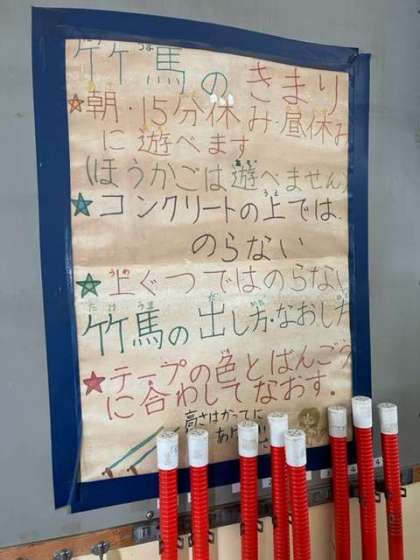 竹馬のきまり
★朝・15分休み・昼休み
に遊べます
(ほうかごは遊べません)
★コンクリートの上では
のらない
★上ぐつではのらない
竹馬の出し方・なおし方
★テープの色とばんごう
に合わせてなおす。
高さはかってに